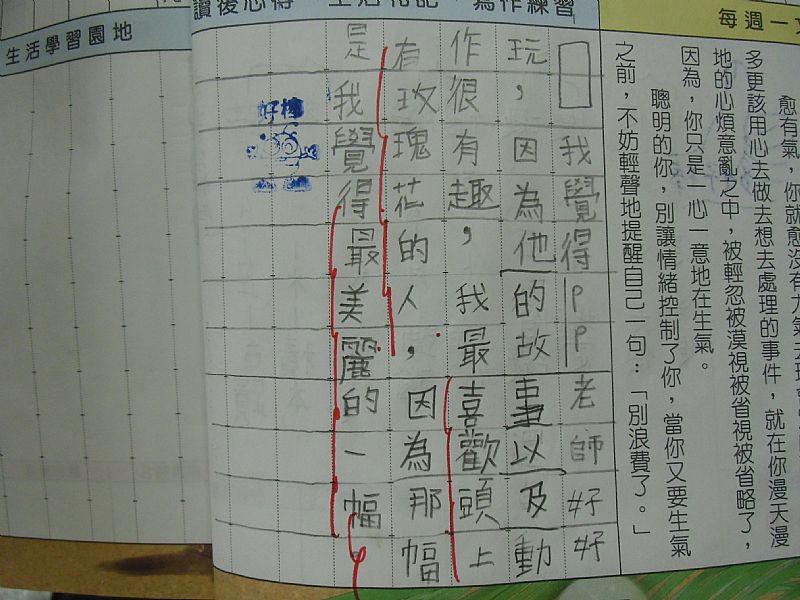 每週一文
愈有氣，你就愈沒有力氣去理
多更該用心去做去想去處理的事件，就在你漫天漫
地的心煩意亂之中，被輕忽被漠視被省視被省略了，
因為，你只是一心一意地在生氣。
聰明的你，別讓情緒控制了你，當你又要生氣
之前，不妨輕聲地提醒自己一句：「別浪費了。」
讀後心得、生活札記、寫作練習
我覺得PP老師好好
玩，因為他的故事以及動
作很有趣，我最喜歡頭上
有玫瑰花的人，因為那幅
是我覺得最美麗的一幅
好棒
生活學習園地